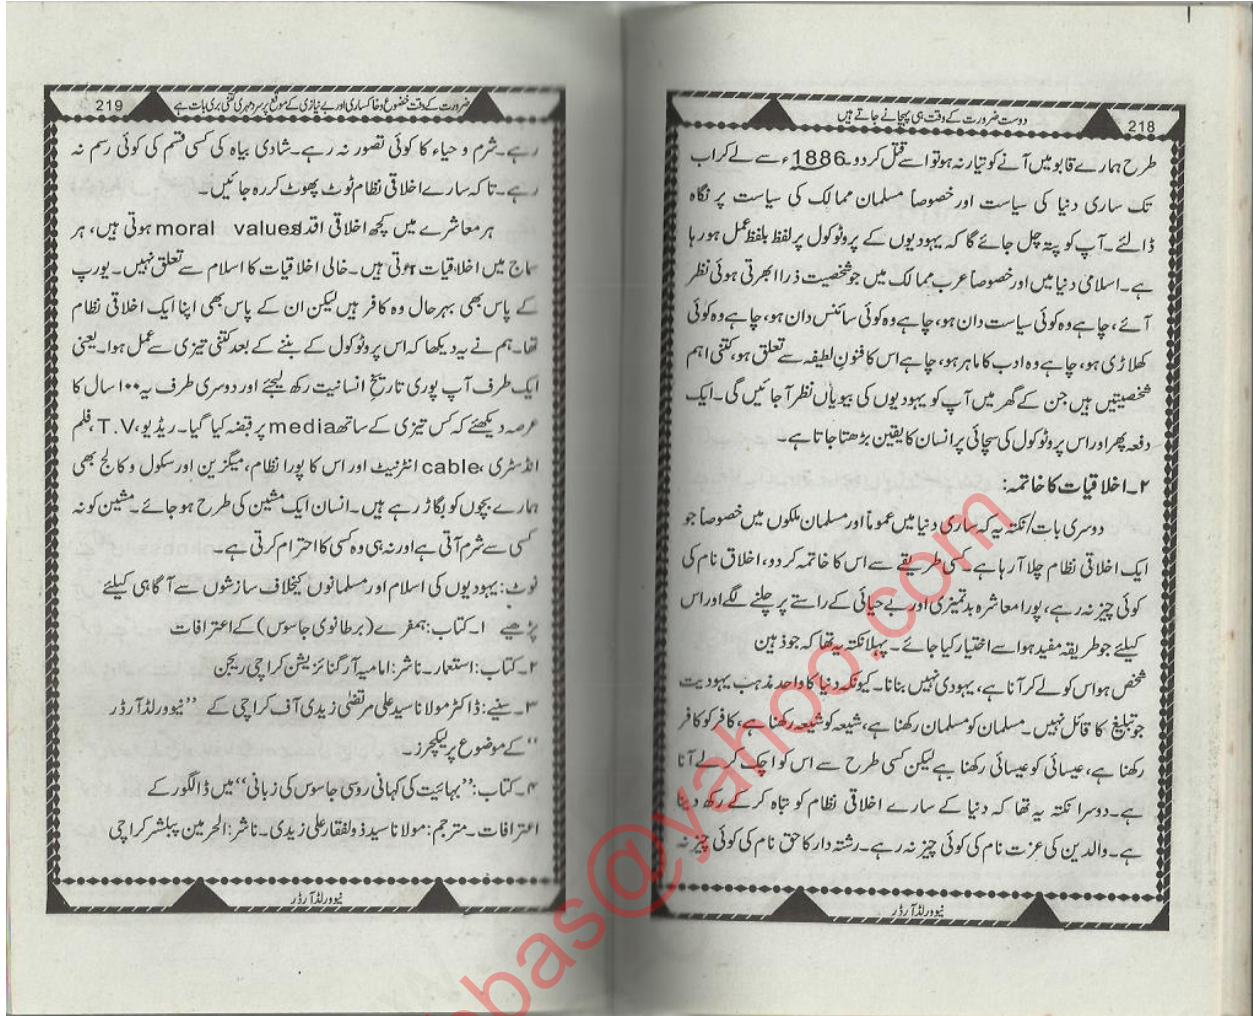 دوست ضرورت کے وقت ہی پہچانے جاتے ہیں
218
طرح ہمارے قابو میں آنے کو تیار نہ ہو تو اسے قتل کر دو۔ 1886ء سے لے کر اب
تک ساری دنیا کی سیاست اور خصوصاً مسلمان ممالک کی سیاست پر نگاہ
ڈالئے۔ آپ کو پتہ چل جائے گا کہ یہودیوں کے پروٹوکول پر لفظ بلفظ عمل ہو رہا
ہے۔ اسلامی دنیا میں اور خصوصاً عرب ممالک میں جو شخصیت ذرا ابھرتی ہوئی نظر
آئے، چاہے وہ کوئی سیاست دان ہو، چاہے وہ کوئی سائنس دان ہو، چاہے وہ کوئی
کھلاڑی ہو، چاہے وہ ادب کا ماہر ہو، چاہے اس کا فنونِ لطیفہ سے تعلق ہو، کتنی اہم
شخصیتیں ہیں جن کے گھر میں آپ کو یہودیوں کی بیویاں نظر آ جائیں گی۔ ایک
دفعہ پھر اور اس پروٹوکول کی سچائی پر انسان کا یقین بڑھتا جاتا ہے۔
۲۔ اخلاقیات کا خاتمہ:
دوسری بات/نکتہ یہ کہ ساری دنیا میں عموماً اور مسلمان ملکوں میں خصوصاً جو
ایک اخلاقی نظام چلا آ رہا ہے کسی طریقے سے اس کا خاتمہ کر دو، اخلاق نام کی
کوئی چیز نہ رہے، پورا معاشرہ بدتمیزی اور بے حیائی کے راستے پر چلنے لگے اور اس
کیلئے جو طریقہ مفید ہو اسے اختیار کیا جائے۔ پہلا نکتہ یہ تھا کہ جو ذہین
شخص ہو اس کو لے کر آنا ہے، یہودی نہیں بنانا۔ کیونکہ دنیا کا واحد مذہب یہودیت
جو تبلیغ کا قائل نہیں۔ مسلمان کو مسلمان رکھنا ہے، شیعہ کو شیعہ رکھنا ہے، کافر کو کافر
رکھنا ہے، عیسائی کو عیسائی رکھنا ہے لیکن کسی طرح سے اس کو اچک کر لے آنا
ہے۔ دوسرا نکتہ یہ تھا کہ دنیا کے سارے اخلاقی نظام کو تباہ کر کے رکھ دینا
ہے۔ والدین کی عزت نام کی کوئی چیز نہ رہے۔ رشتہ دار کا حق نام کی کوئی چیز نہ
نیو ورلڈ آرڈر
ضرورت کے وقت خضوع و خاکساری اور بے نیازی کے موقع پر سرد مہری کتنی بری بات ہے
219
رہے۔ شرم و حیاء کا کوئی تصور نہ رہے۔ شادی بیاہ کی کسی قسم کی کوئی رسم نہ
رہے۔ تاکہ سارے اخلاقی نظام ٹوٹ پھوٹ کر رہ جائیں۔
ہر معاشرے میں کچھ اخلاقی اقدار moral values ہوتی ہیں، ہر
سماج میں اخلاقیات ہوتی ہیں۔ خالی اخلاقیات کا اسلام سے تعلق نہیں۔ یورپ
کے پاس بھی بہرحال وہ کافر ہیں لیکن ان کے پاس بھی اپنا ایک اخلاقی نظام
تھا۔ ہم نے یہ دیکھا کہ اس پروٹوکول کے بننے کے بعد کتنی تیزی سے عمل ہوا۔ یعنی
ایک طرف آپ پوری تاریخِ انسانیت رکھ لیجئے اور دوسری طرف یہ ۱۰۰ سال کا
عرصہ دیکھئے کہ کس تیزی کے ساتھ media پر قبضہ کیا گیا۔ ریڈیو، T.V، فلم
انڈسٹری، cable انٹرنیٹ اور اس کا پورا نظام، میگزین اور سکول و کالج بھی
ہمارے بچوں کو بگاڑ رہے ہیں۔ انسان ایک مشین کی طرح ہو جائے۔ مشین کو نہ
کسی سے شرم آتی ہے اور نہ ہی وہ کسی کا احترام کرتی ہے۔
نوٹ: یہودیوں کی اسلام اور مسلمانوں کیخلاف سازشوں سے آگاہی کیلئے
پڑھیے ۱۔ کتاب: ہمفرے (برطانوی جاسوس) کے اعترافات
۲۔ کتاب: استعمار۔ ناشر: امامیہ آرگنائزیشن کراچی ریجن
۳۔ سنیے: ڈاکٹر مولانا سید علی مرتضیٰ زیدی آف کراچی کے ''نیو ورلڈ آرڈر
'' کے موضوع پر لیکچرز۔
۴۔ کتاب: ''بہائیت کی کہانی روسی جاسوس کی زبانی'' میں ڈالگور کے
اعترافات۔ مترجم: مولانا سید ذولفقار علی زیدی۔ ناشر: الحرمین پبلشر کراچی
نیو ورلڈ آرڈر
bas@yahoo.com